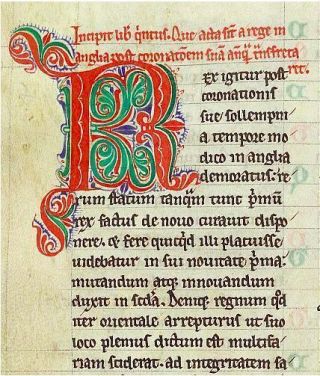 Incipit lib' q̃ntus. Que acta sĩt a rege in
anglia post coronatõem suã anꝗ̃ tñsfreta
ret.
Rex igitur post
coronationis
sue sollempnia
a tempore mo
dico in anglia
demoratus: re
rum statum tanꝗ̃m tunc pⁱmũ
rex factus de novo curavit dispo
nere. ac fere quicꝗ̃d illi placuisse
videbatur in sui novitate pⁱma:
mutandum atꝗ; innovandum
duxit in scd̃a. Deniꝗ; regnum qd̃
iter orientale arrepturus ut suo
loco plenius dictum est multifa
riam sciderat. ad integritatem sa